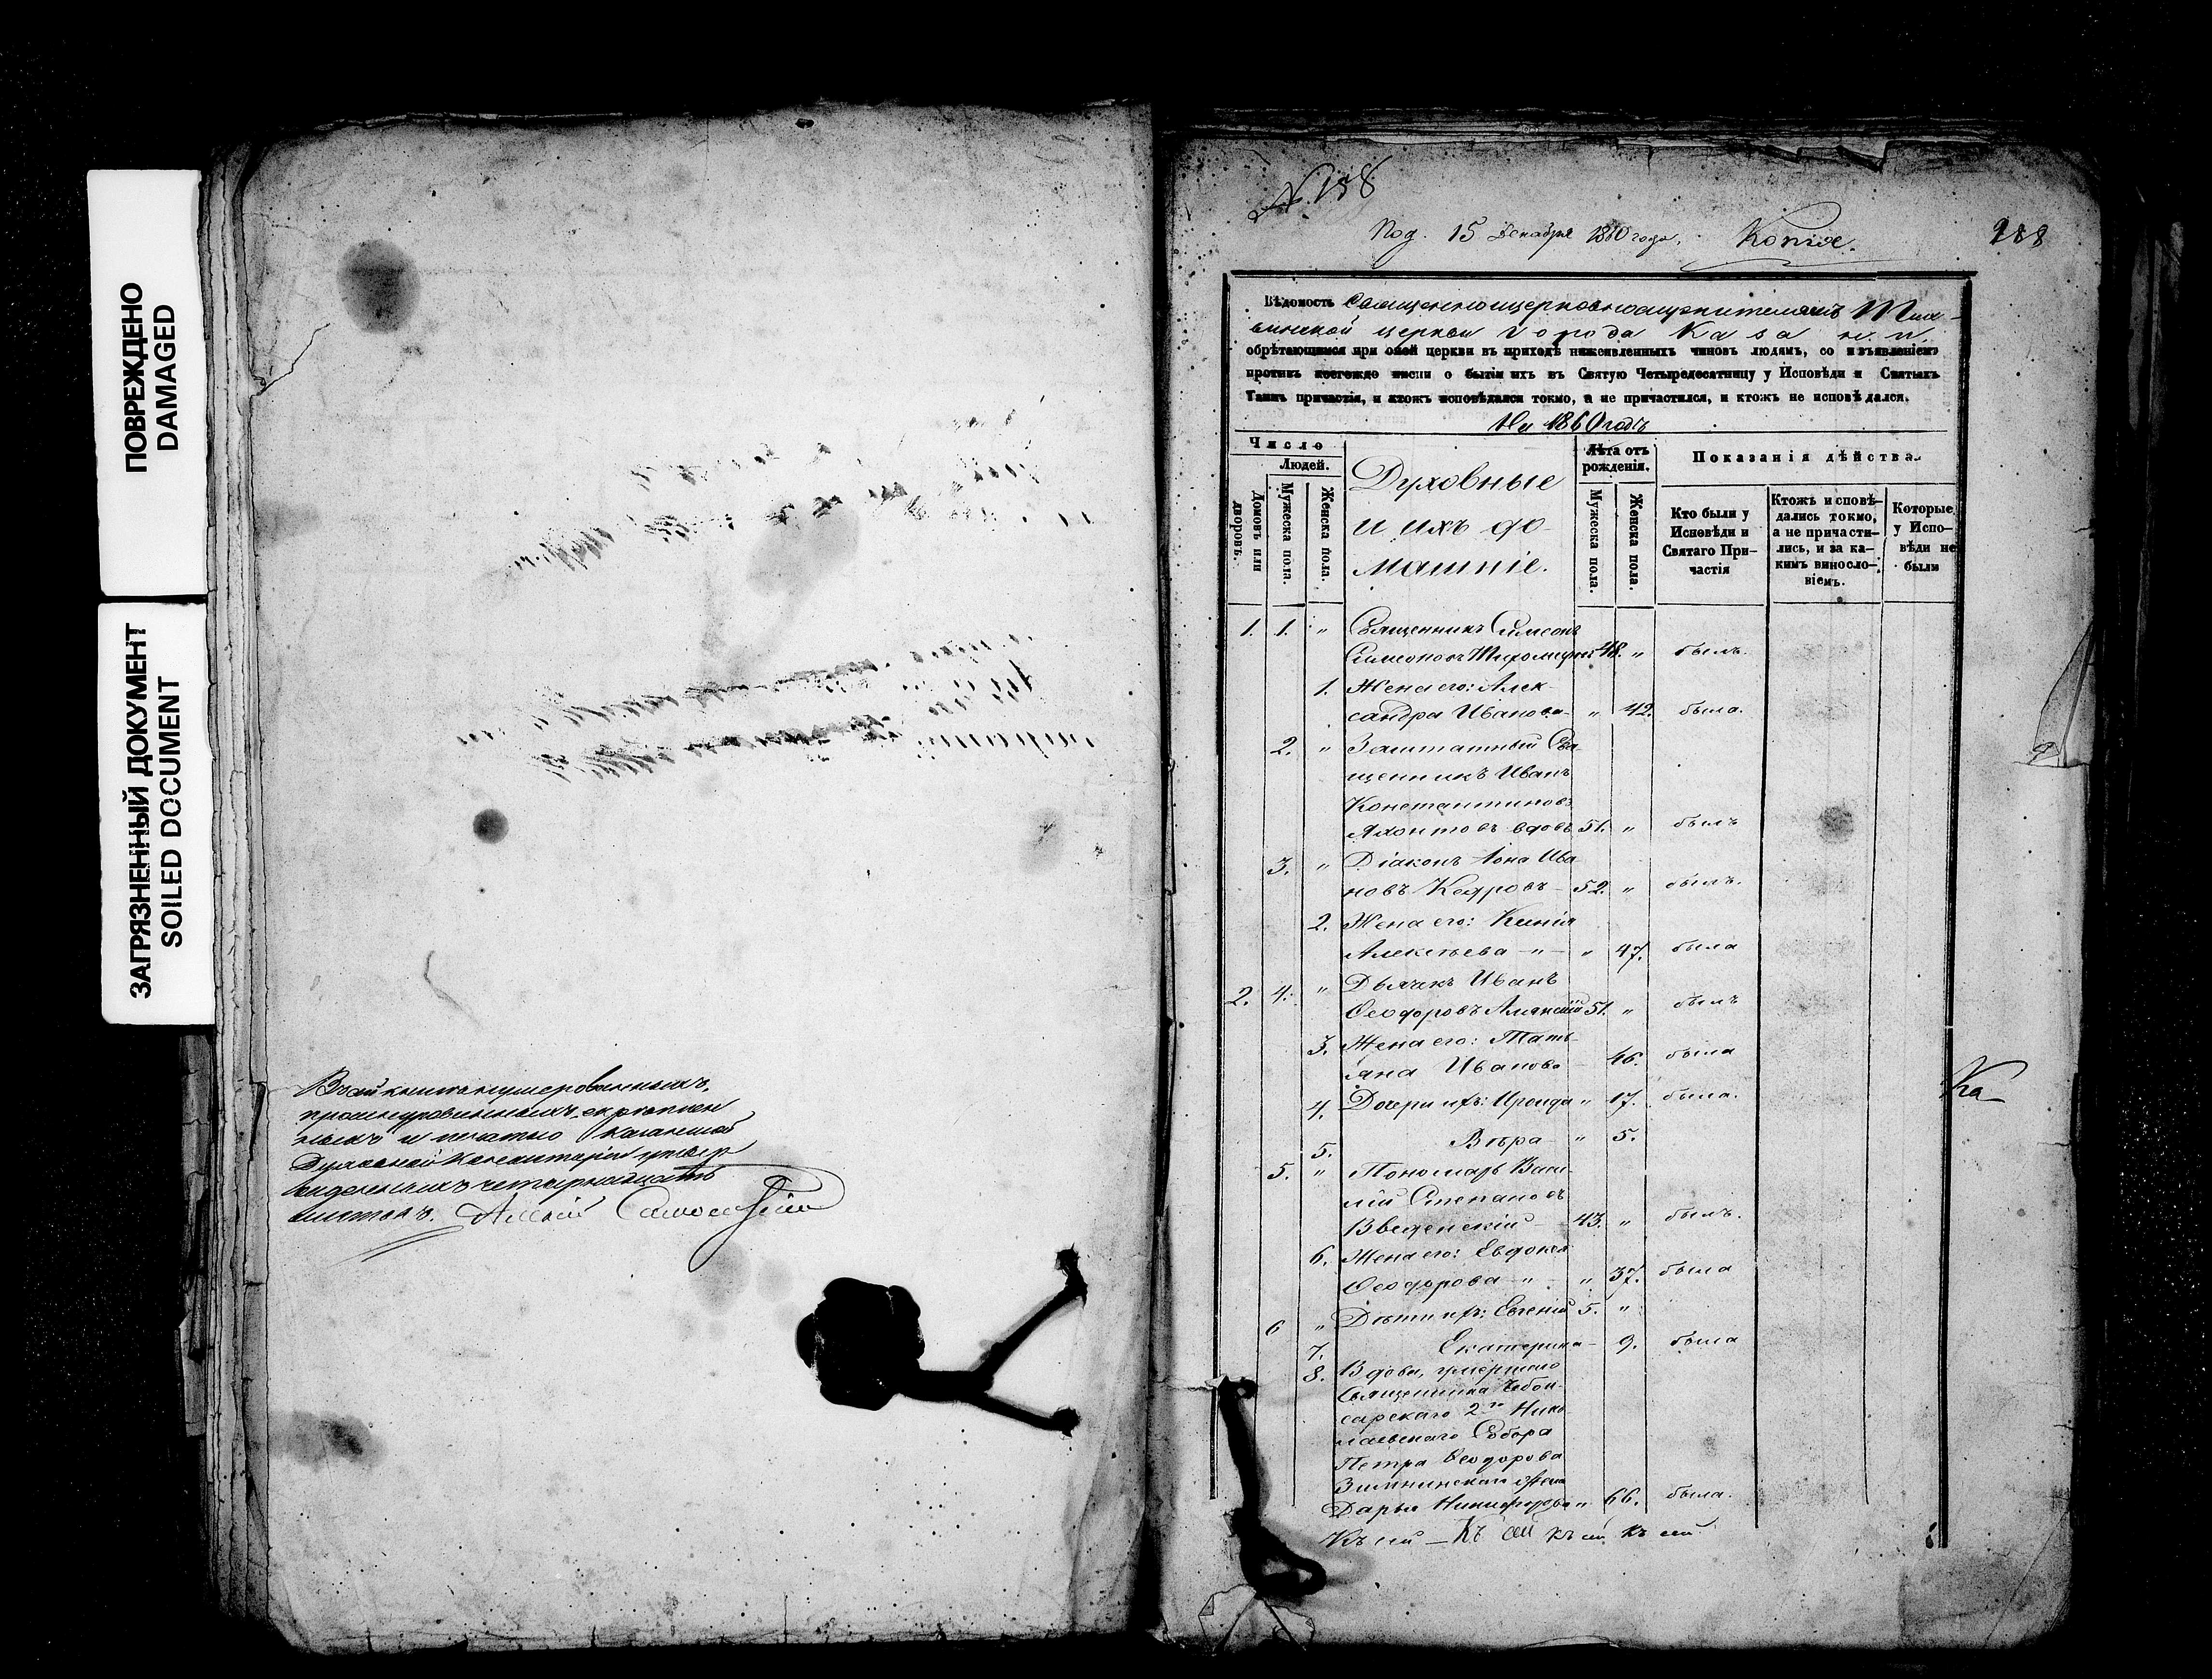 ПОВРЕЖДЕНО
DAMAGED
ЗАГРЯЗНЕННЫЙ ДОКУМЕНТ
SOILED DOCUMENT
нумерованныхъ,
прошнурованныхъ, скрѣплен
ныхъ и печатью Казанской
Духовной Консисторіи утвер
жденныхъ четырнадцать
листовъ.
№ 158
Под. 15 Декабря 1860 года. Копія.
Вѣдомость Священноцерковнослужителямъ Тих
винской церкви города Казани.
обрѣтающимся при оной церкви въ приходѣ нижеявленныхъ чиновъ людямъ, со изъявленіемъ
противъ коегождо имени о бытіи ихъ въ Святую Четыредесятницу у Исповѣди и Святыхъ
Таинъ причастія, и ктожъ исповѣдался токмо, а не причастился, и ктожъ не исповѣдался.
На 1860 годъ
Число
Людей.
Домовъ или дворовъ.
Мужеска пола.
Женска пола.
Духовные
и ихъ до-
машніе.
Лѣта отъ
рожденія.
Мужеска пола.
Женска пола.
Показанія дѣйства.
Кто были у
Исповѣди и
Святаго При-
частія
Ктожъ исповѣ-
дались токмо,
а не причасти-
лись, и за ка-
кимъ винosло-
віемъ.
Которые
у Испо-
вѣди не
были
1. 1. " Священникъ Симеонъ
Симеоновъ Тихомировъ 48. " былъ.
1. Жена его: Алек-
сандра Иванова - " 42. была.
2. " Заштатный Свя-
щенникъ Иванъ
Константиновъ
Яхонтовъ вдовъ 51. " былъ
3. " Діаконъ Іона Ива
новъ Кедровъ - 52. " былъ.
2. Жена его: Ксенія
Алексѣева - " - " 47. была
2. 4. " Дьячекъ Иванъ
Ѳеодоровъ 51. " былъ
3. Жена его: Тать-
яна Иванова 46. была
4. Дочери ихъ: Ираида " 17. была.
5. Вѣра " 5.
5. " Пономарь Васи-
лій Степановъ
Введенскій - 43. " былъ.
6. Жена его: Евдокія
Ѳеодорова - " " 37. была
6 " Дѣти ихъ: Евгеній 5. "
7. Екатерина - 9. была
8. Вдова, умершаго
Священника Чебок-
сарскаго 2го Нико-
лаевскаго Собора
Петра Ѳеодорова
Зимнинскаго жена
Дарья Никифорова " 66. была.
Къ сей - Къ сей къ сей къ сей
Ка-